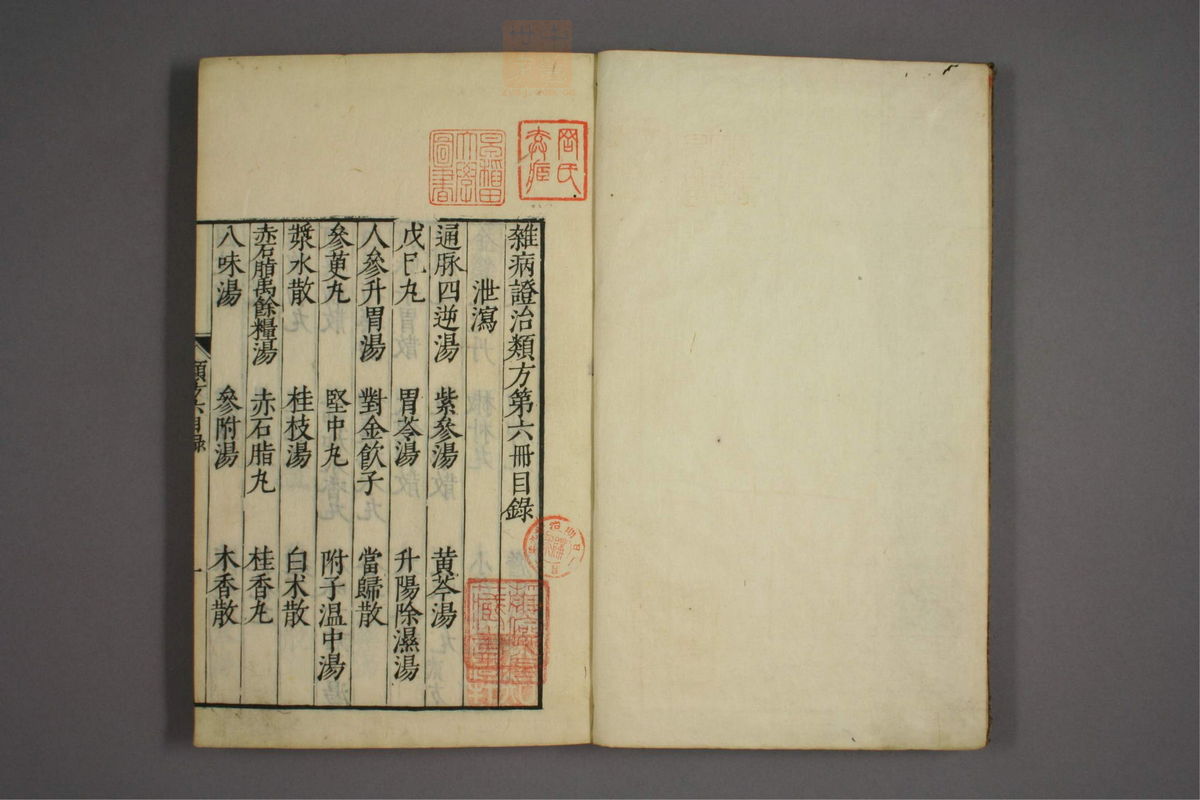 雜病證治類方第六冊目錄
泄瀉
通脉四逆湯　紫參湯　黄芩湯
戊巳丸　胃苓湯　升陽除濕湯
人參升胃湯　對金飲子　當歸散
參萸丸　堅中丸　附子温中湯
漿水散　桂枝湯　白朮散
赤石脂禹餘糧湯　赤石脂丸　桂香丸
八味湯　參附湯　木香散
類方六目錄
一
早稻田大學圖書